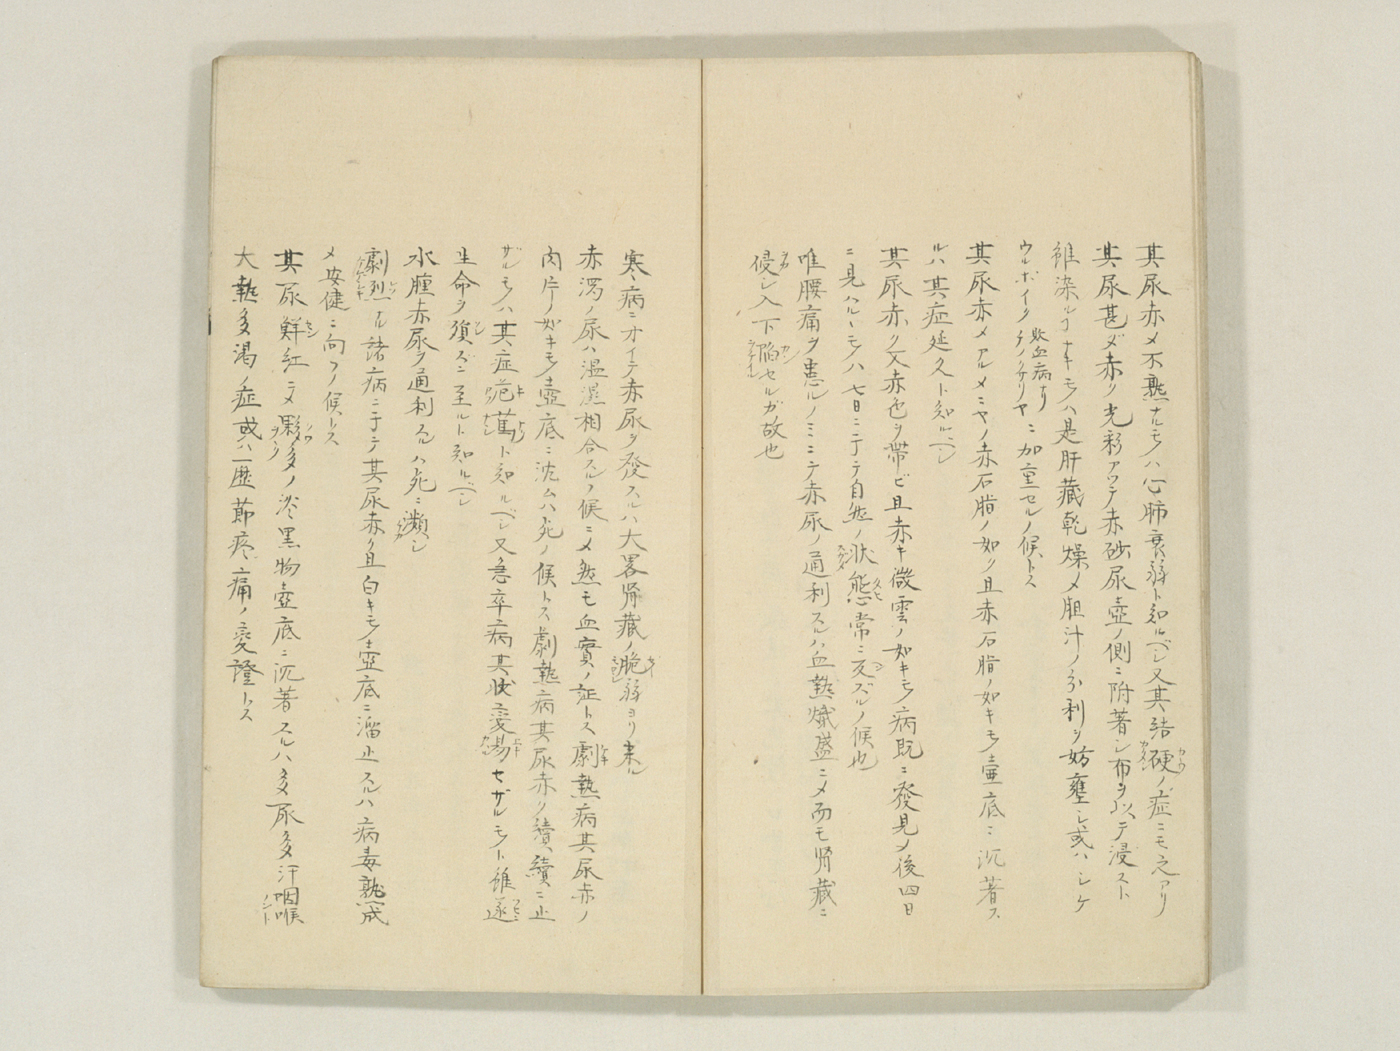 其尿赤メ不熟ナルモノハ心肺衰弱ト知ルベシ又其結硬ノ症ニモ之アリ
其尿甚ダ赤ク光彩アツテ赤砂尿壺ノ側ニ附著シ布ヲ以テ浸スト
雖染ルヿナキモノハ是肝藏乾燥メ胆汁ノ分利ヲ妨壅シ或ハシケ
ウルボイク 敗血病ナリ ニ加重セルノ候トス
其尿赤メアルメニヤノ赤石脂ノ如ク且赤石脂ノ如キモノ壺底ニ沉著ス
ルハ其症延久ト知ルベシ
其尿赤ク又赤色ヲ帶ビ且赤キ微雲ノ如キモノ病既ニ發見メ後四日
ニ見ハルヽモノハ七日ニ于テ自然ノ状態常ニ反ズルノ候也
唯腰痛ヲ患ルノミニテ赤尿ノ通利スルハ血熱熾盛ニメ而モ腎藏ニ
侵シ入下陥セルガ故也
寒病ニオイテ赤尿ヲ發スルハ大畧腎藏ノ脆弱ヨリ来ル
赤瀉ノ尿ハ温濕相合スルノ候ニメ然モ血實ノ証トス劇熱病其尿赤ク
肉片ノ如キモノ壺底ニ沈ムハ死ノ候トス劇熱病其尿赤ク續續ニ止
ザルモノハ其症危篤ト知ルベシ又急卒病其状変易セザルモノト雖遂
生命ヲ殞ズニ至ルト知ルベシ
水腫赤尿ヲ通利スルハ死ニ瀕シ
劇烈ナル諸病ニ于テ其尿赤ク且白キモノ壺底ニ溜止スルハ病毒熟成
メ安健ニ向フノ候トス
其尿鮮紅ニメ夥多ノ淡黒物壺底ニ沉著スルハ多尿多汗咽喉
大熱多渇ノ症或ハ歴節疼痛ノ変證トス